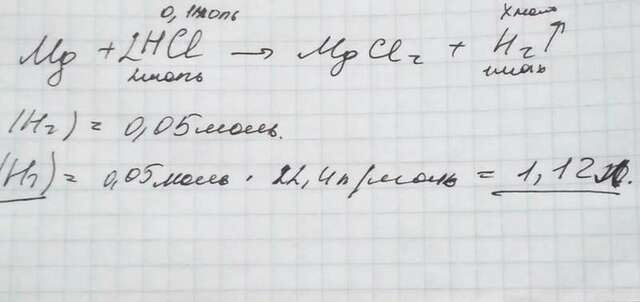 0,1моль
Х моль
Mg + 2HCl → MgCl₂ + H₂↑
2моль
1моль
(H₂) = 0,05моль.
(H₂) = 0,05моль · 22,4л/моль = 1,12л.